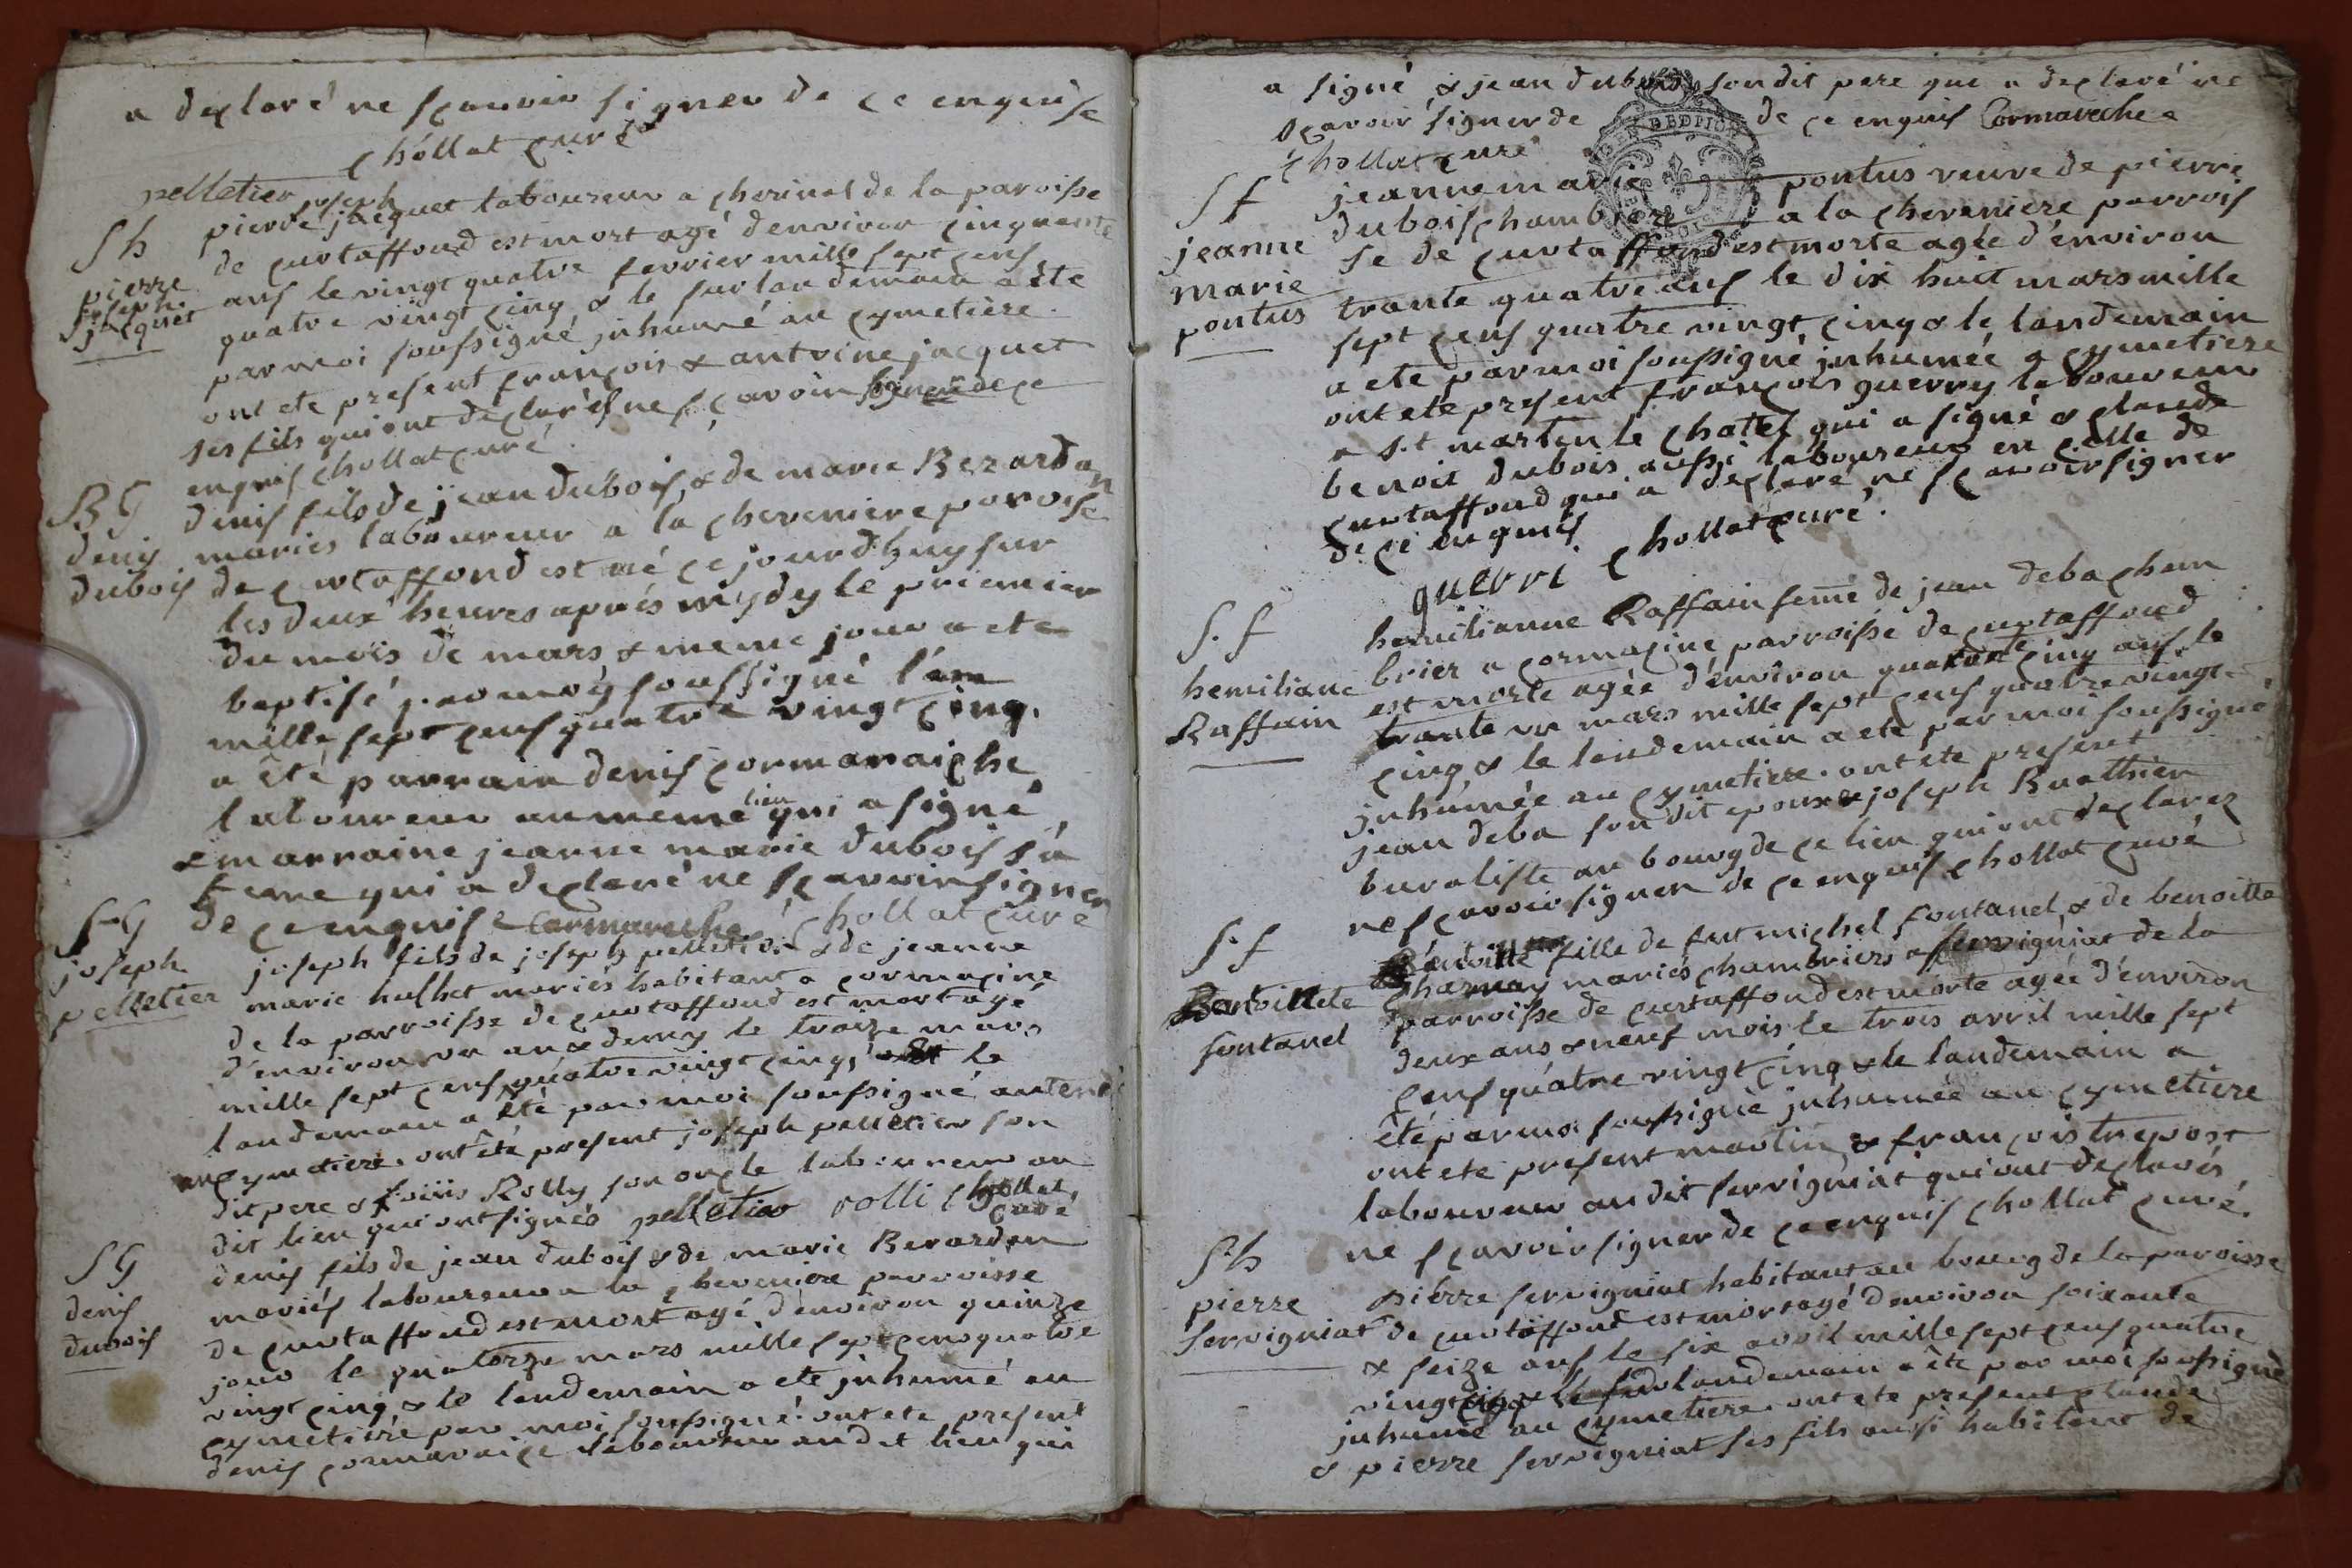 a declaré ne scavoir signer de ce enquise
chollat curé
pelletier
Sh
pierre
joseph
jacquet
pierre joseph jacquet laboureur a cherinal de la paroisse
de curtaffond est mort agé denviron cinquante
ans le vingt quatre fevrier mille sept cens
quatre vingt cinq & le surlandemain a ete
par moi soussigné inhumé au cymetiere
ont ete present francois & antoine jacquet
ses fils qui ont declarés ne scavoir signer de ce
enquis chollat curé
BG
denis
dubois
denis fils de jean dubois & de marie Berardan
mariés laboureur a la cheveniere paroisse
de curtaffond est né ce jourdhuy sur
les deux heures aprés mydy le priemier
du mois de mars & meme jour a ete
baptisé par moy soussigné l'an
mille sept cens quatre vingt cinq.
a été parrain denis cormaraiche
laboureur au meme lieu qui a signé
& marraine jeanne marie dubois sa
feme qui a declaré ne scavoir signer
de ce enquise Cormareche chollat curé
S-G
joseph
pelletier
joseph fils de joseph pelletier & de jeanne
marie huchet mariés habitant a cormacine
de la parroisse de curtaffond est mort agé
d'environ un an & demy le traize mars
mille sept cens quatre vingt cinq, & le
landemain a été par moi soussigné anteré
au cymetiere. ont été present joseph pelletier son
dit pere & foiiis Rolly son oncle laboureur au
dit lieu qui ont signés pelletier rolli chollat
curé
SG
denis
dubois
denis fils de jean dubois & de marie Berardan
mariés laboureur a la cheveniere parroisse
de curtaffond est mort agé d'environ quinze
jour le quatorze mars mille sept cens quatre
vingt cinq & le landemain a ete inhumé au
cymetiére par moi soussigné. ont ete present
denis cormaraice laboureur audit lieu qui
a signé & jean dubois son dit pere qui a declaré ne
scavoir signer de de ce enquis Cormareche
chollat curé
S f
jeanne
marie
pontus
jeanne marie pontus veuve de pierre
dubois chambriere a la cheveniere parrois
se de curtaffond est morte agée d'environ
trante quatre ans le dix huit mars mille
sept cens quatre vingt cinq & le landemain
a ete par moi soussigné inhumée a cymetiere
ont ete present francois guerry laboureur
a s.t martin le chatel qui a signé & claude
benoit dubois aussi laboureur en celle de
curtaffond qui a declaré ne scavoir signer
de ce enquis
guerri chollat curé.
S. f
hemiliane
Raffain
hemilianne Raffain feme de jean deba cham
brier a cormacine parroisse de curtaffond
est morte agée d'environ quarante cinq ans le
trante un mars mille sept cens quatre vingt
cinq & le landemain a ete par moi soussigné
inhumée au cymetiere. ont ete present
jean deba son dit epoux & joseph Buathier
buraliste au bourg de ce lieu qui ont declarez
ne scavoir signer de ce enquis chollat curé
S. f
Benoitte
fontanel
Benoitte fille de fut michel fontanel & de benoitte
charnay mariés chambriers a servigniat de la
parroisse de curtaffond est morte agée d'environ
deux ans & neuf mois le trois avril mille sept
cens quatre vingt cinq & le landemain a
été par moi soussigné inhumée au cymetiere
ont ete present martin & francois trepost
laboureur au dit servigniat qui ont declarés
ne scavoir signer de ce enquis chollat curé.
Sh
pierre
servigniat
piérre servigniat habitant au bourg de la paroisse
de curtaffond est mort agé denviron soixante
& seize ans le six avril mille sept cens quatre
vingt cinq & le landemain a ête par moi soussigné
inhumé au cymetiere. ont ete present claude
& pierre servigniat ses fils aussi habitant de